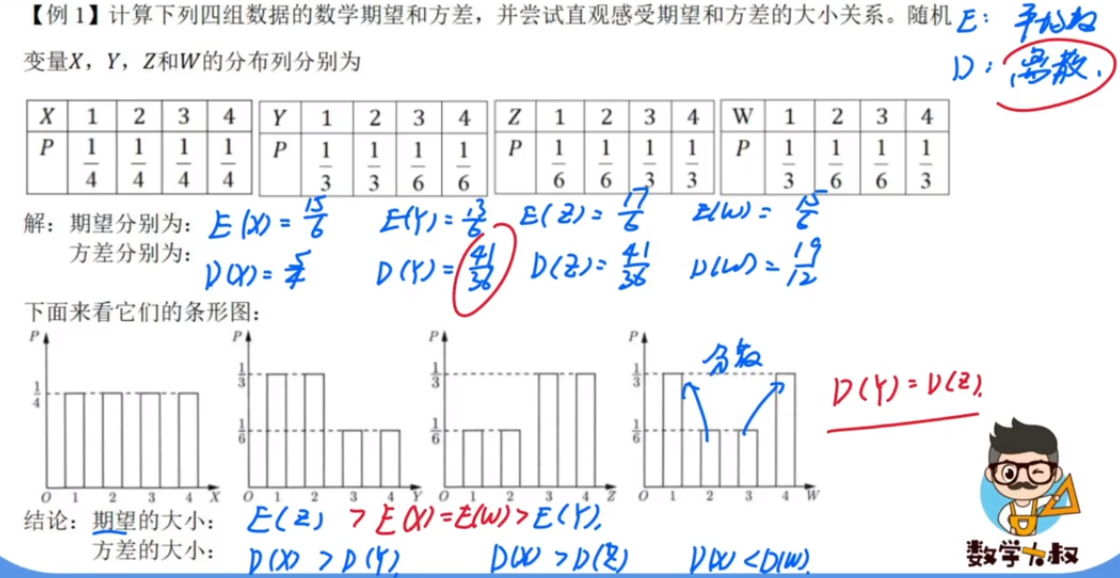 【例 1】计算下列四组数据的数学期望和方差，并尝试直观感受期望和方差的大小关系。随机
变量X，Y，Z和W的分布列分别为
E: 平均数
D: 离散.
X 1 2 3 4
P 1/4 1/4 1/4 1/4
Y 1 2 3 4
P 1/3 1/3 1/6 1/6
Z 1 2 3 4
P 1/6 1/6 1/3 1/3
W 1 2 3 4
P 1/3 1/6 1/6 1/3
解：期望分别为：E(X)=15/6 E(Y)=13/6 E(Z)=17/6 E(W)=15/6
方差分别为：D(X)=5/4 D(Y)=41/36 D(Z)=41/36 D(W)=19/12
下面来看它们的条形图：
P 1/4 O 1 2 3 4 X
P 1/3 1/6 O 1 2 3 4 Y
P 1/3 1/6 O 1 2 3 4 Z
P 1/3 1/6 O 1 2 3 4 W
分散
D(Y)=D(Z).
结论：期望的大小：E(Z)>E(X)=E(W)>E(Y).
方差的大小：D(X)>D(Y) D(X)>D(Z) D(X)<D(W).
数学大叔